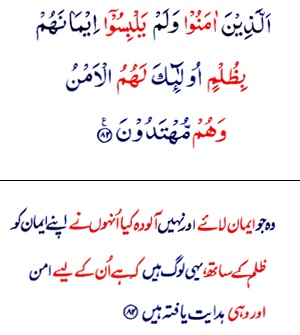 اَلَّذِيْنَ اٰمَنُوْا وَلَمْ يَلْبِسُوْٓا اِيْمَانَهُمْ
بِظُلْمٍ اُولٰٓئِكَ لَهُمُ الْاَمْنُ
وَهُمْ مُّهْتَدُوْنَ ﴿۸۲﴾ ع
وہ جو ایمان لائے اور نہیں آلودہ کیا اُنہوں نے اپنے ایمان کو
ظلم کے ساتھ، یہی لوگ ہیں کہ ہے اُن کے لیے امن
اور وہی ہدایت یافتہ ہیں ﴿۸۲﴾